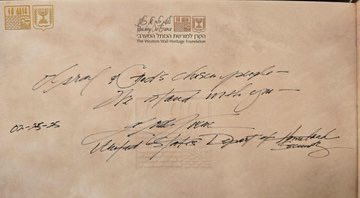 הקרן למורשת הכותל המערבי
The Western Wall Heritage Foundation
Israel & God's chosen people –
We stand with you –
02-25-25
United States Dept of Homeland
Security